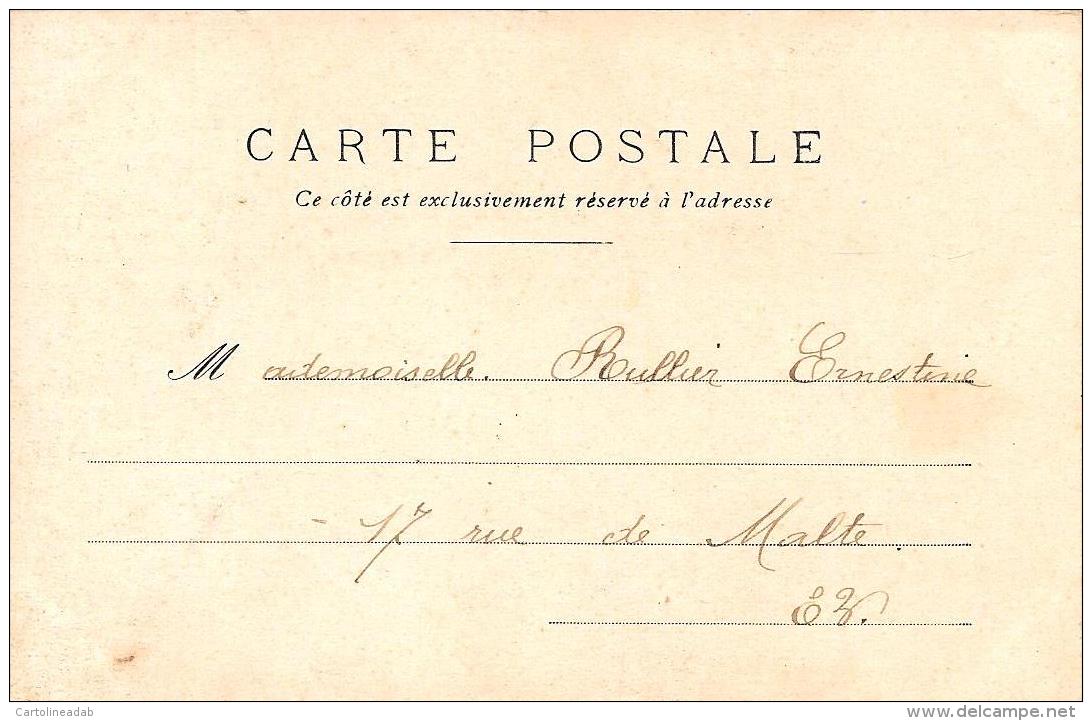 CARTE POSTALE
Ce côté est exclusivement réservé à l'adresse
Mademoiselle. Rullier Ernestine
- 17 rue de Malte.
EV.
Cartolineadab
delcampe.net